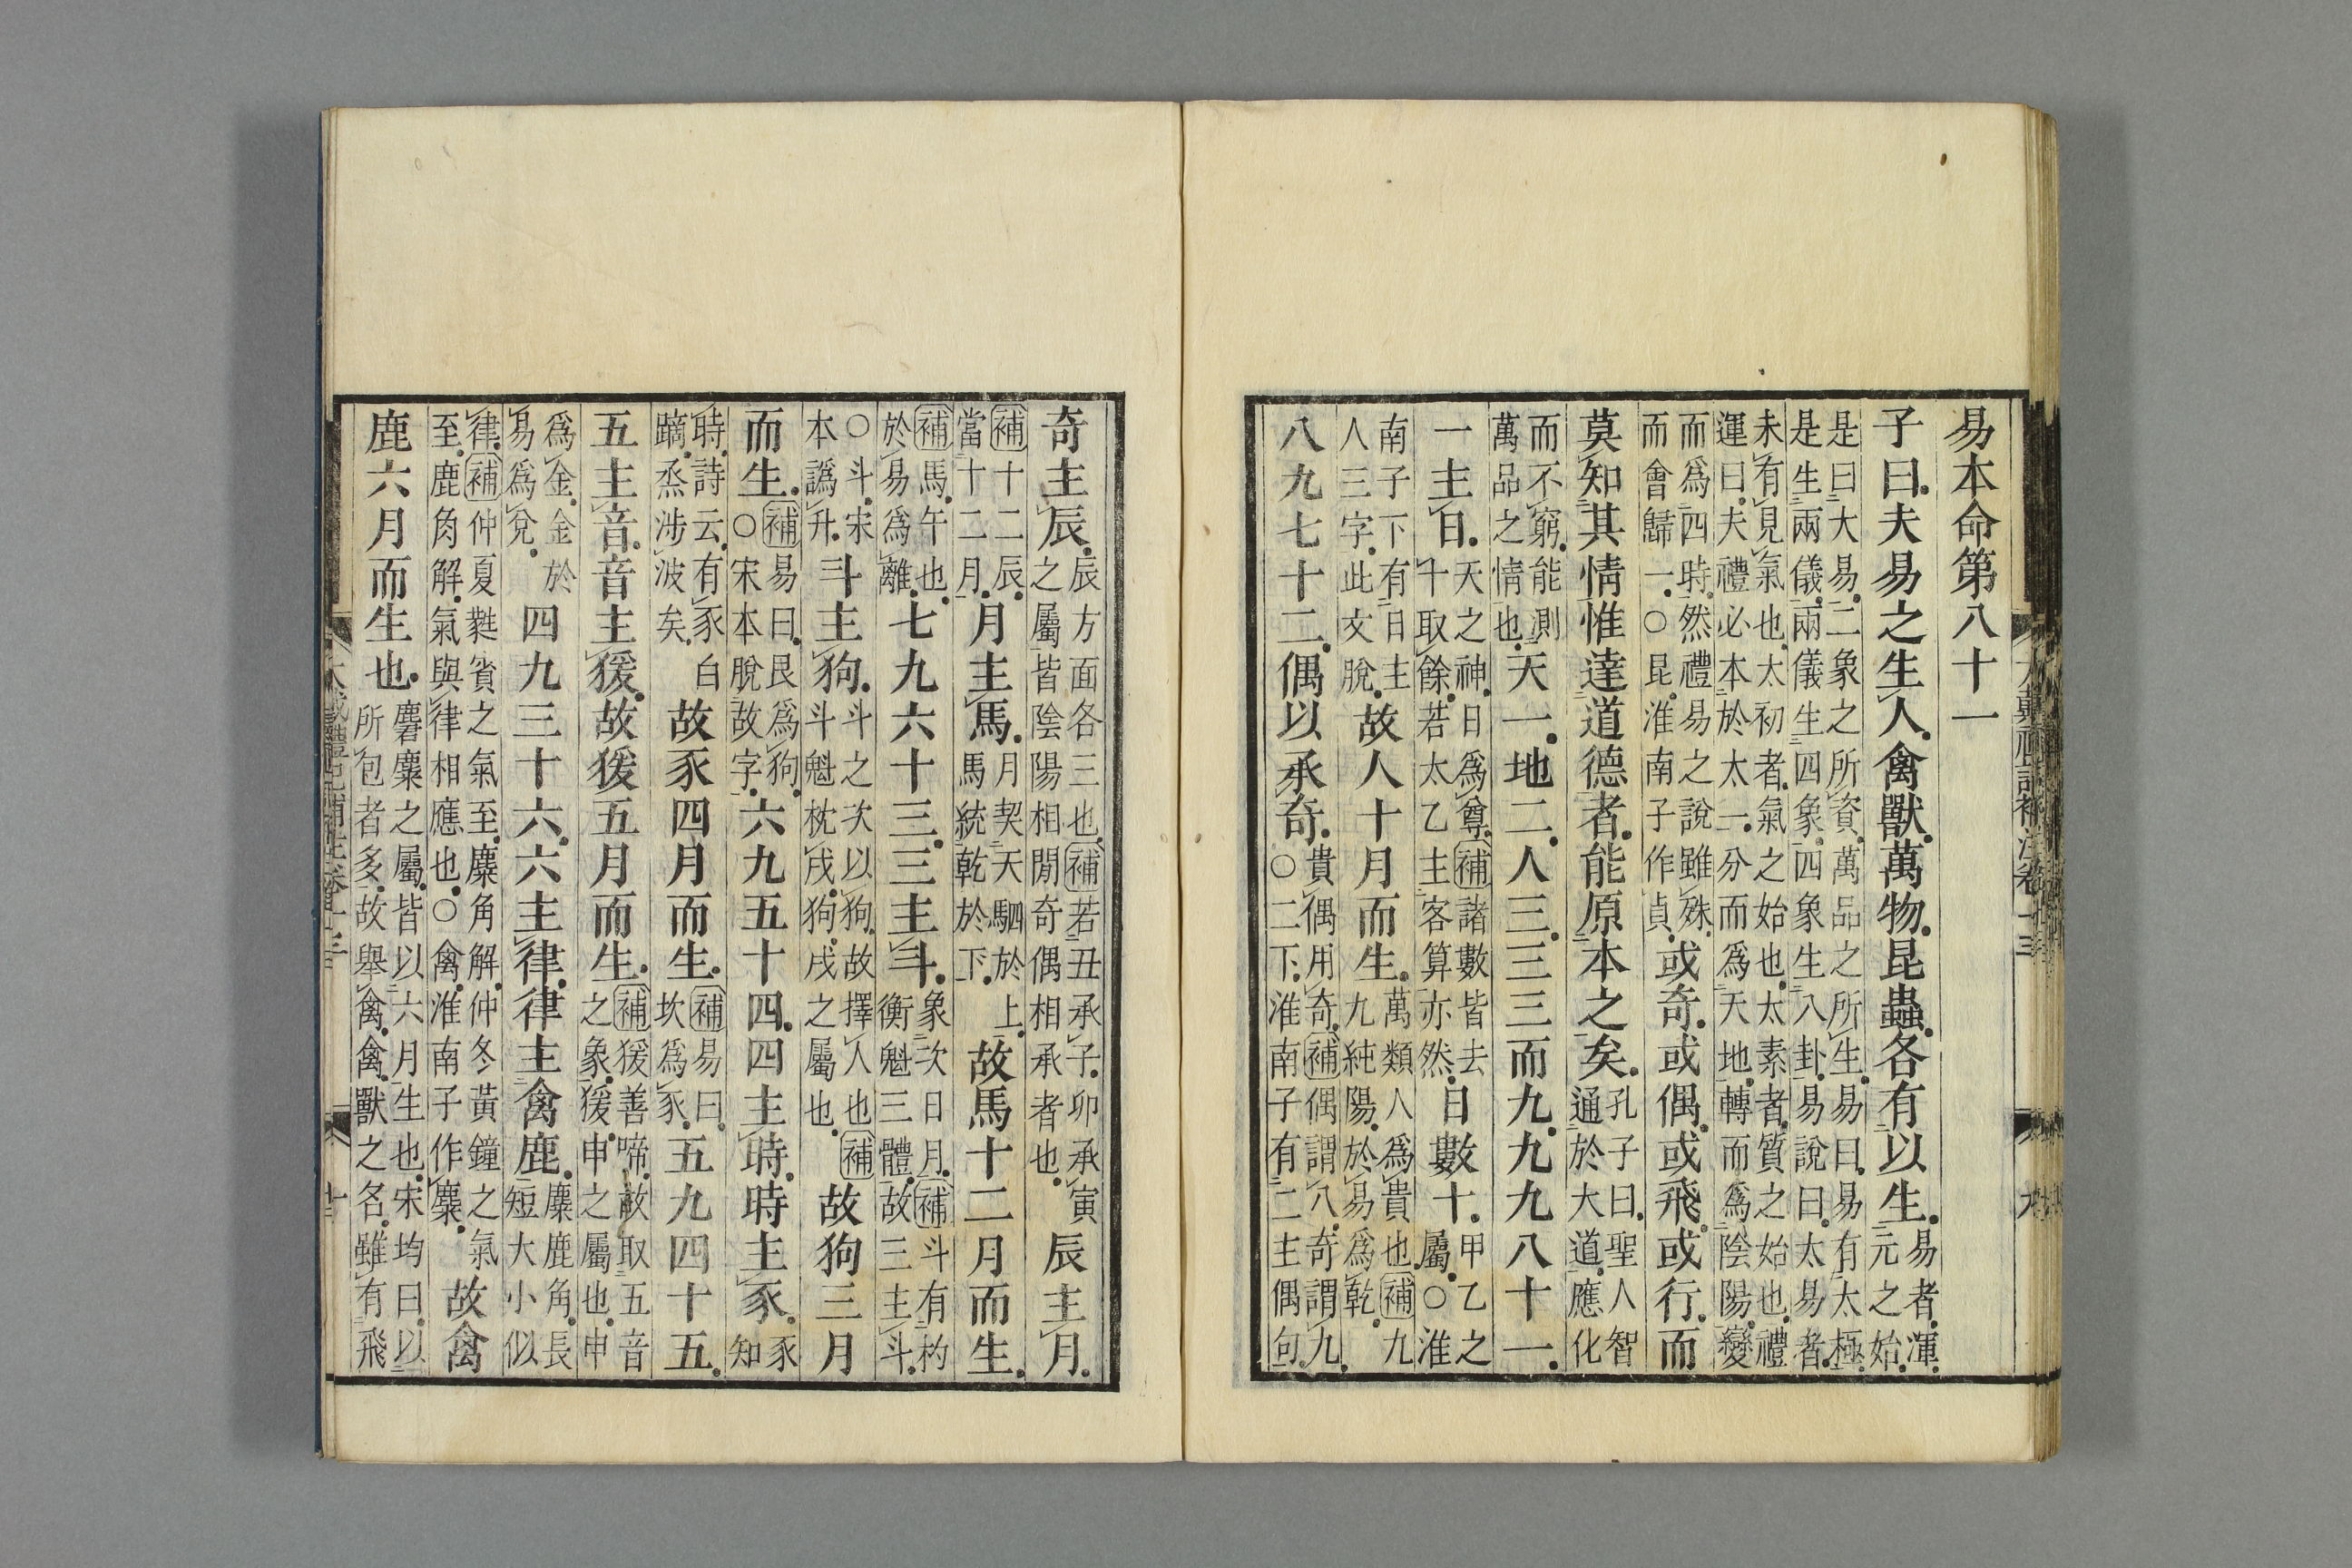 易本命第八十一
子曰夫易之生人禽獸萬物昆蟲各有以生易者渾元之始
是曰大易二象之所資萬品之所生易曰易有太極
是生兩儀兩儀生四象四象生八卦易說曰太易者
未有見氣也太初者氣之始也太素者質之始也禮
運曰夫禮必本於太一分而爲天地轉而爲陰陽變
而爲四時然禮易之說雖殊
而會歸一○昆淮南子作貞
或奇或偶或飛或行而
莫知其情惟達道德者能原本之矣孔子曰聖人智
通於大道應化
而不窮能測
萬品之情也
天一地二人三三三而九九九八十一
一主日天之神日爲尊補諸數皆去
十取餘若太乙主客算亦然
日數十甲乙之
屬○淮
南子下有日主
人三字此文脫
故人十月而生萬類人爲貴也補九
九純陽於易爲乾
八九七十二偶以承奇貴偶用奇補偶謂八奇謂九
○二下淮南子有二主偶句
奇主辰辰方面各三也補若丑承子卯承寅
之屬皆陰陽相閒奇偶相承者也
辰主月
補十二辰
當十二月
月主馬月契天駟於上
馬統乾於下
故馬十二月而生
補馬午也
於易爲離
七九六十三三主斗象次日月補斗有杓
衡魁三體故三主斗
○斗宋
本譌升
斗主狗斗之次以狗故擇人也補
斗魁枕戌狗戌之屬也
故狗三月
而生補易曰艮爲狗
○宋本脫故字
六九五十四四主時時主豕豕
知
時詩云有豕白
蹢烝涉波矣
故豕四月而生補易曰
坎爲豕
五九四十五
五主音音主猨故猨五月而生補猨善啼故取五音
之象猨申之屬也申
爲金金於
易爲兌
四九三十六六主律律主禽鹿麋鹿角長
短大小似
律補仲夏蕤賓之氣至麋角解仲冬黃鐘之氣
至鹿角解氣與律相應也○禽淮南子作麋
故禽
鹿六月而生也麏麋之屬皆以六月生也宋均曰以
所包者多故舉禽禽獸之名雖有飛